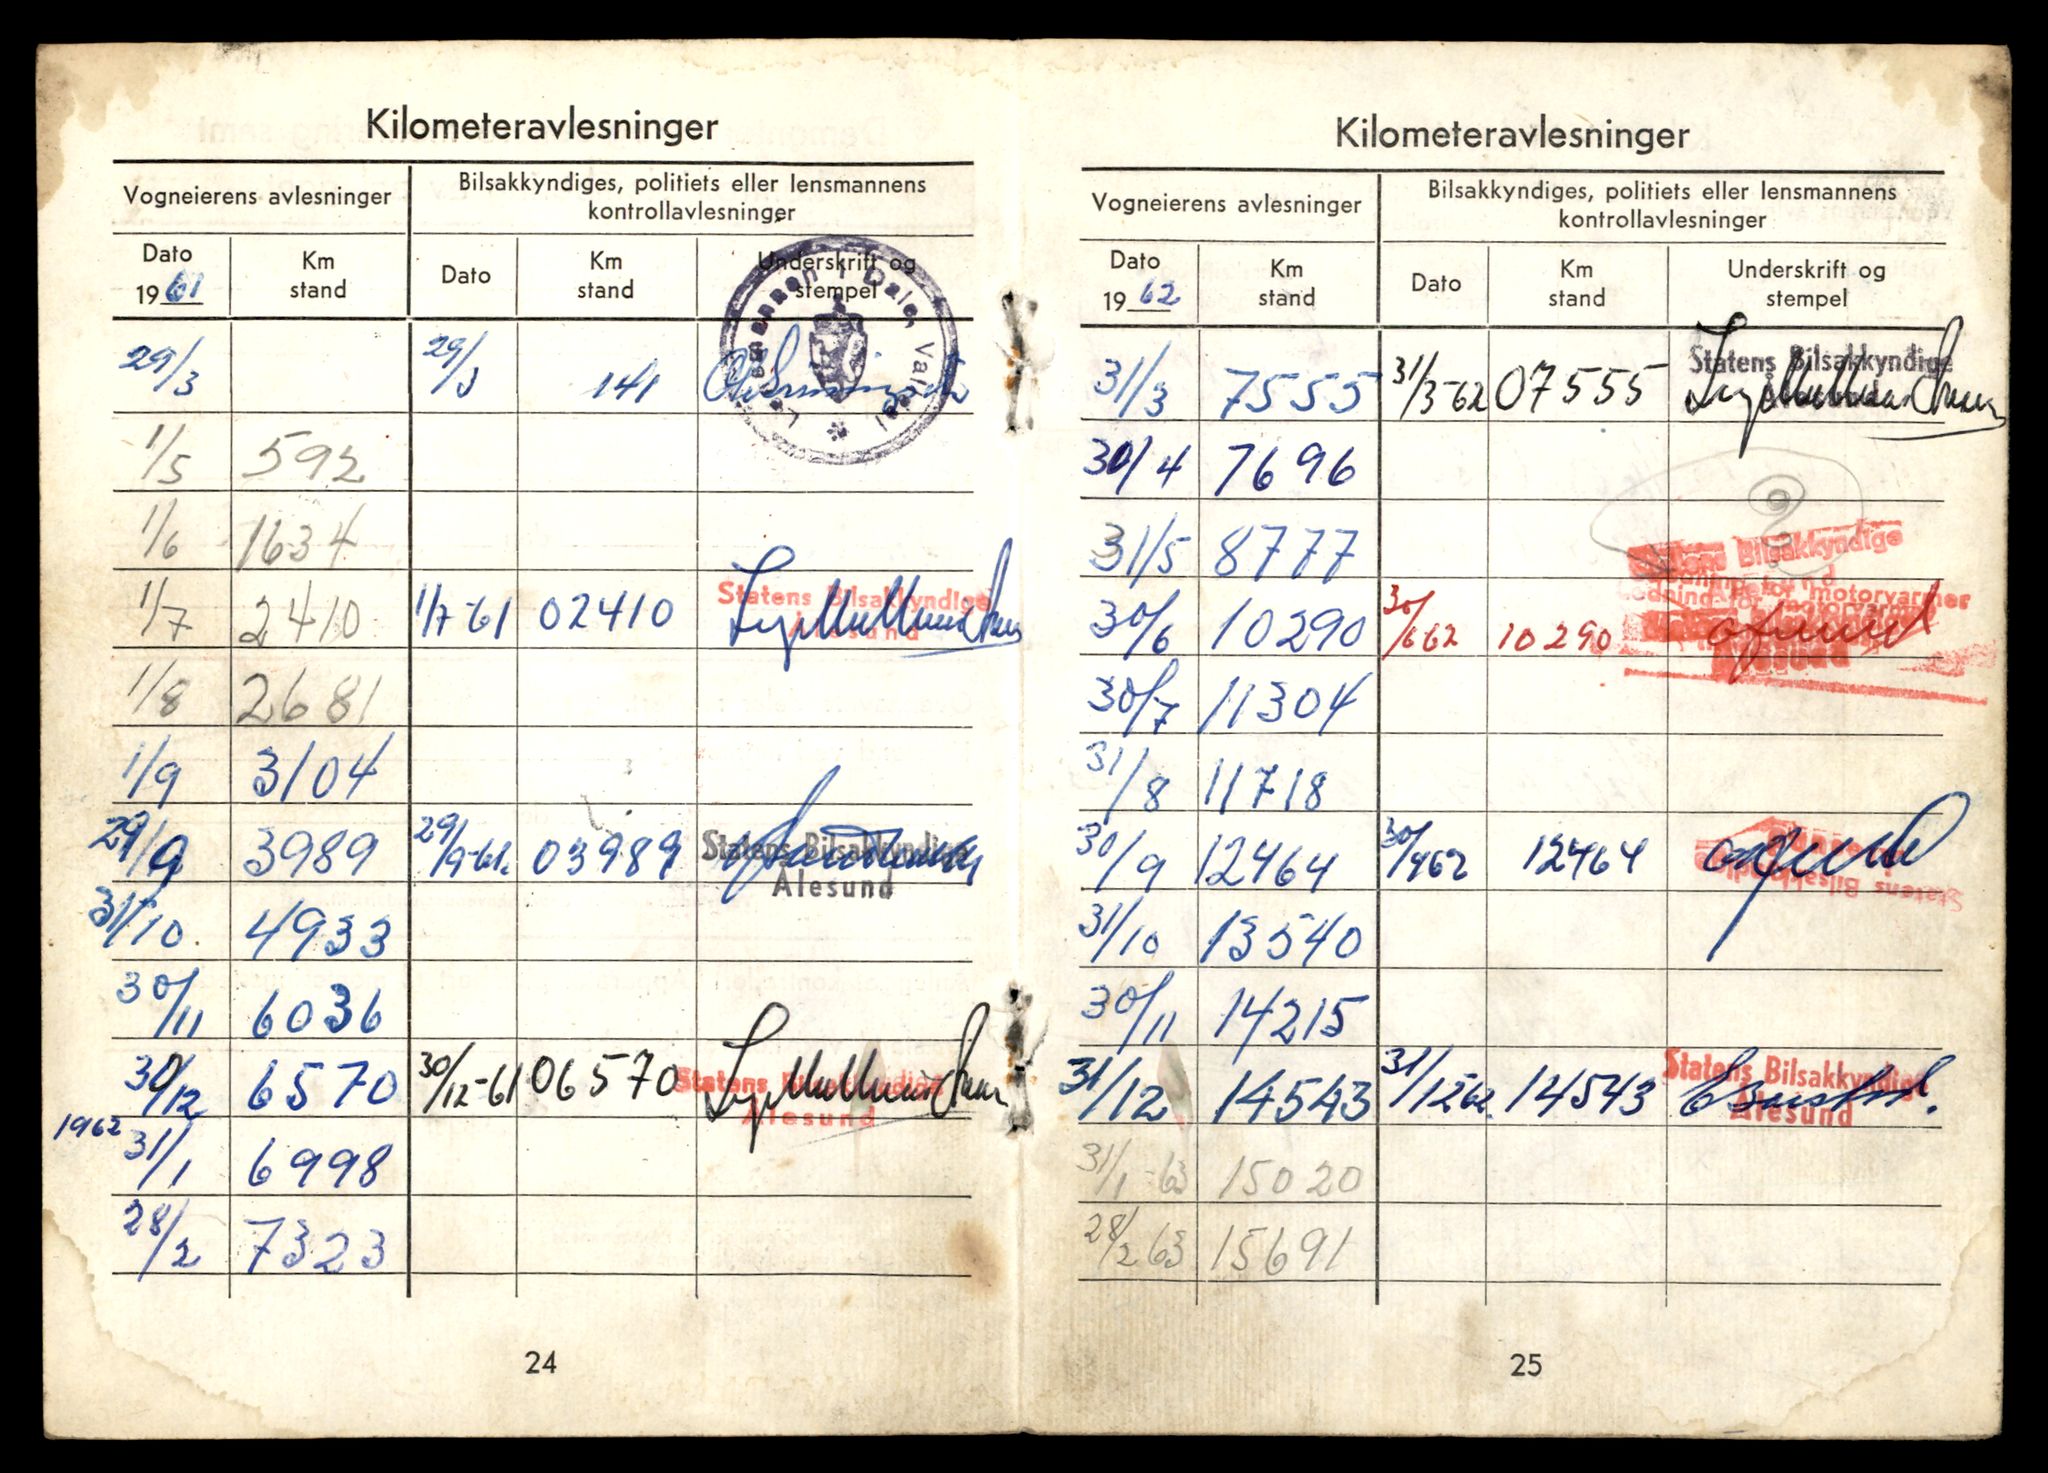 Kilometeravlesninger
Vogneierens avlesninger
Bilsakkyndiges, politiets eller lensmannens
kontrollavlesninger
Dato
1961
Km
stand
Dato
Km
stand
Underskrift og
stempel
Lensmannen i Dale, Valldal
29/3 29/3 141
1/5 592
1/6 1634
1/7 2410 1/7-61 02410 Statens Bilsakkyndige
Ålesund
1/8 2681
1/9 3104
29/9 3989 29/9-61. 03989 Statens Bilsakkyndige
Ålesund
31/10. 4933
30/11 6036
30/12 6570 30/12-61 06570 Statens Bilsakkyndige
Ålesund
1962
31/1 6998
28/2 7323
24
Kilometeravlesninger
Vogneierens avlesninger
Bilsakkyndiges, politiets eller lensmannens
kontrollavlesninger
Dato
1962
Km
stand
Dato
Km
stand
Underskrift og
stempel
31/3 7555 31/3-62 07555 Statens Bilsakkyndige
30/4 7696
31/5 8777
Statens Bilsakkyndige
30/6 10290 30/662 10290
motorvogner
Ålesund
30/7 11304
31/8 11718
30/9 12464 30/962 12464
Statens Bilsakkyndige
31/10 13540
30/11 14215
31/12 14543 31/1262. 14543 Statens Bilsakkyndige
Ålesund
31/1-63 15020
28/2 63 15691
25